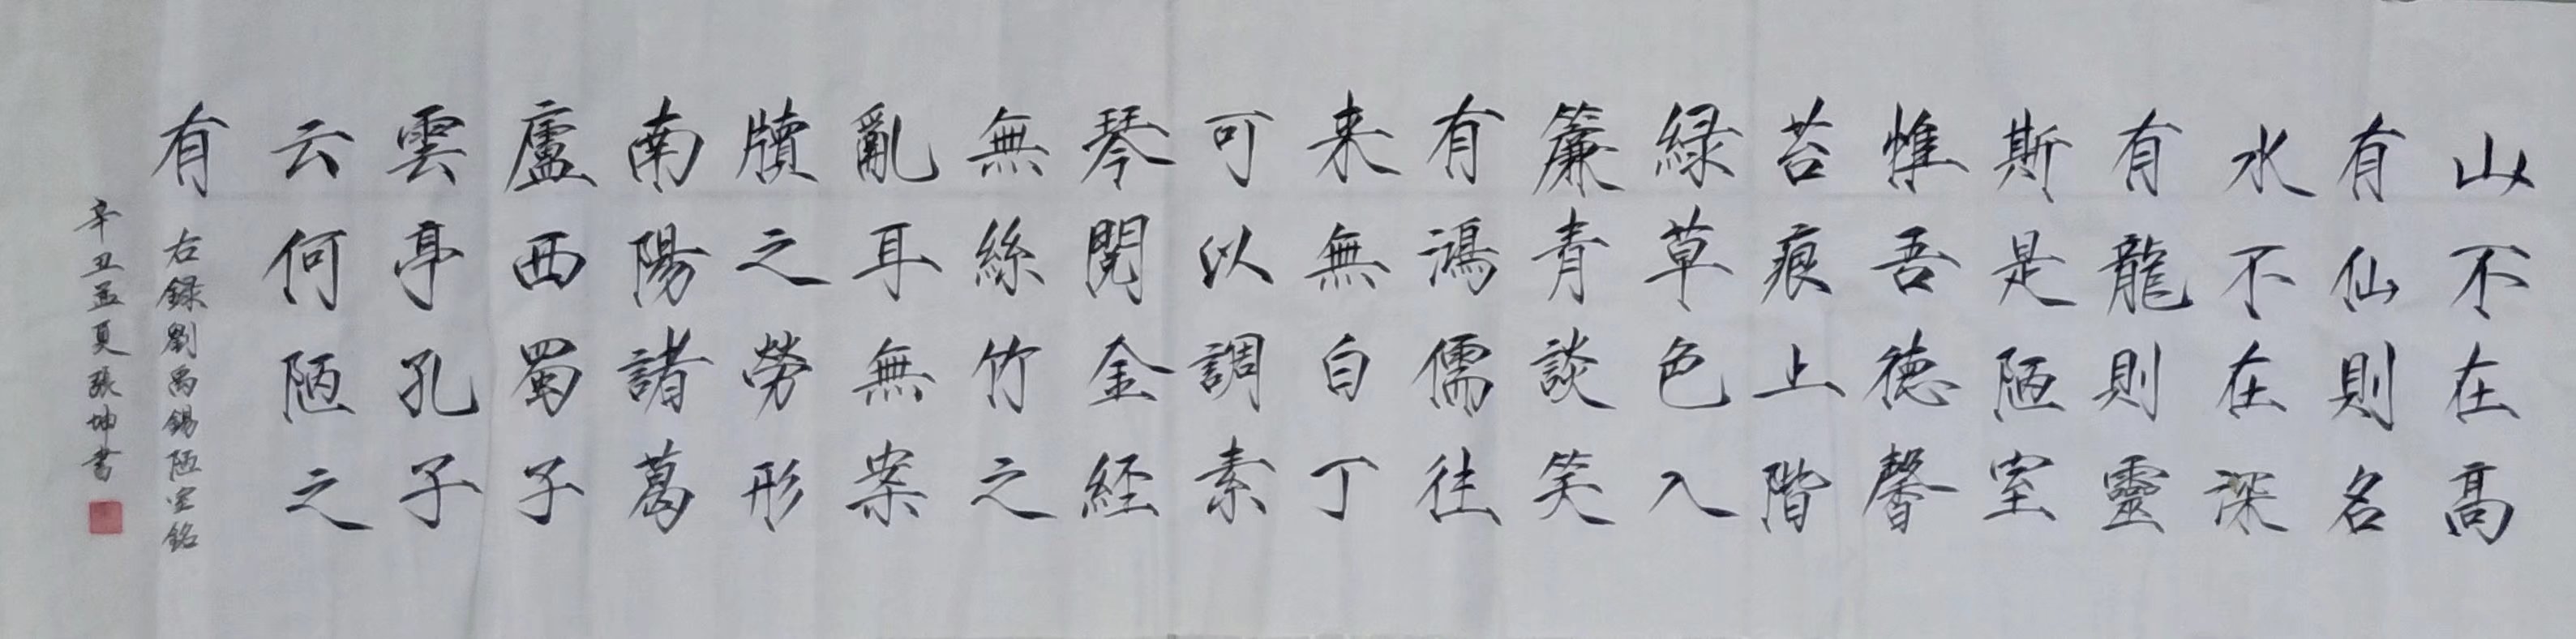 山不在高
有仙則名
水不在深
有龍則靈
斯是陋室
惟吾德馨
苔痕上階
緑草色入
簾青談笑
有鴻儒往
来無白丁
可以調素
琴閱金経
無絲竹之
亂耳無案
牘之勞形
南陽諸葛
廬西蜀子
雲亭孔子
云何陋之
有
右録劉禹錫陋室銘
辛丑孟夏張坤書